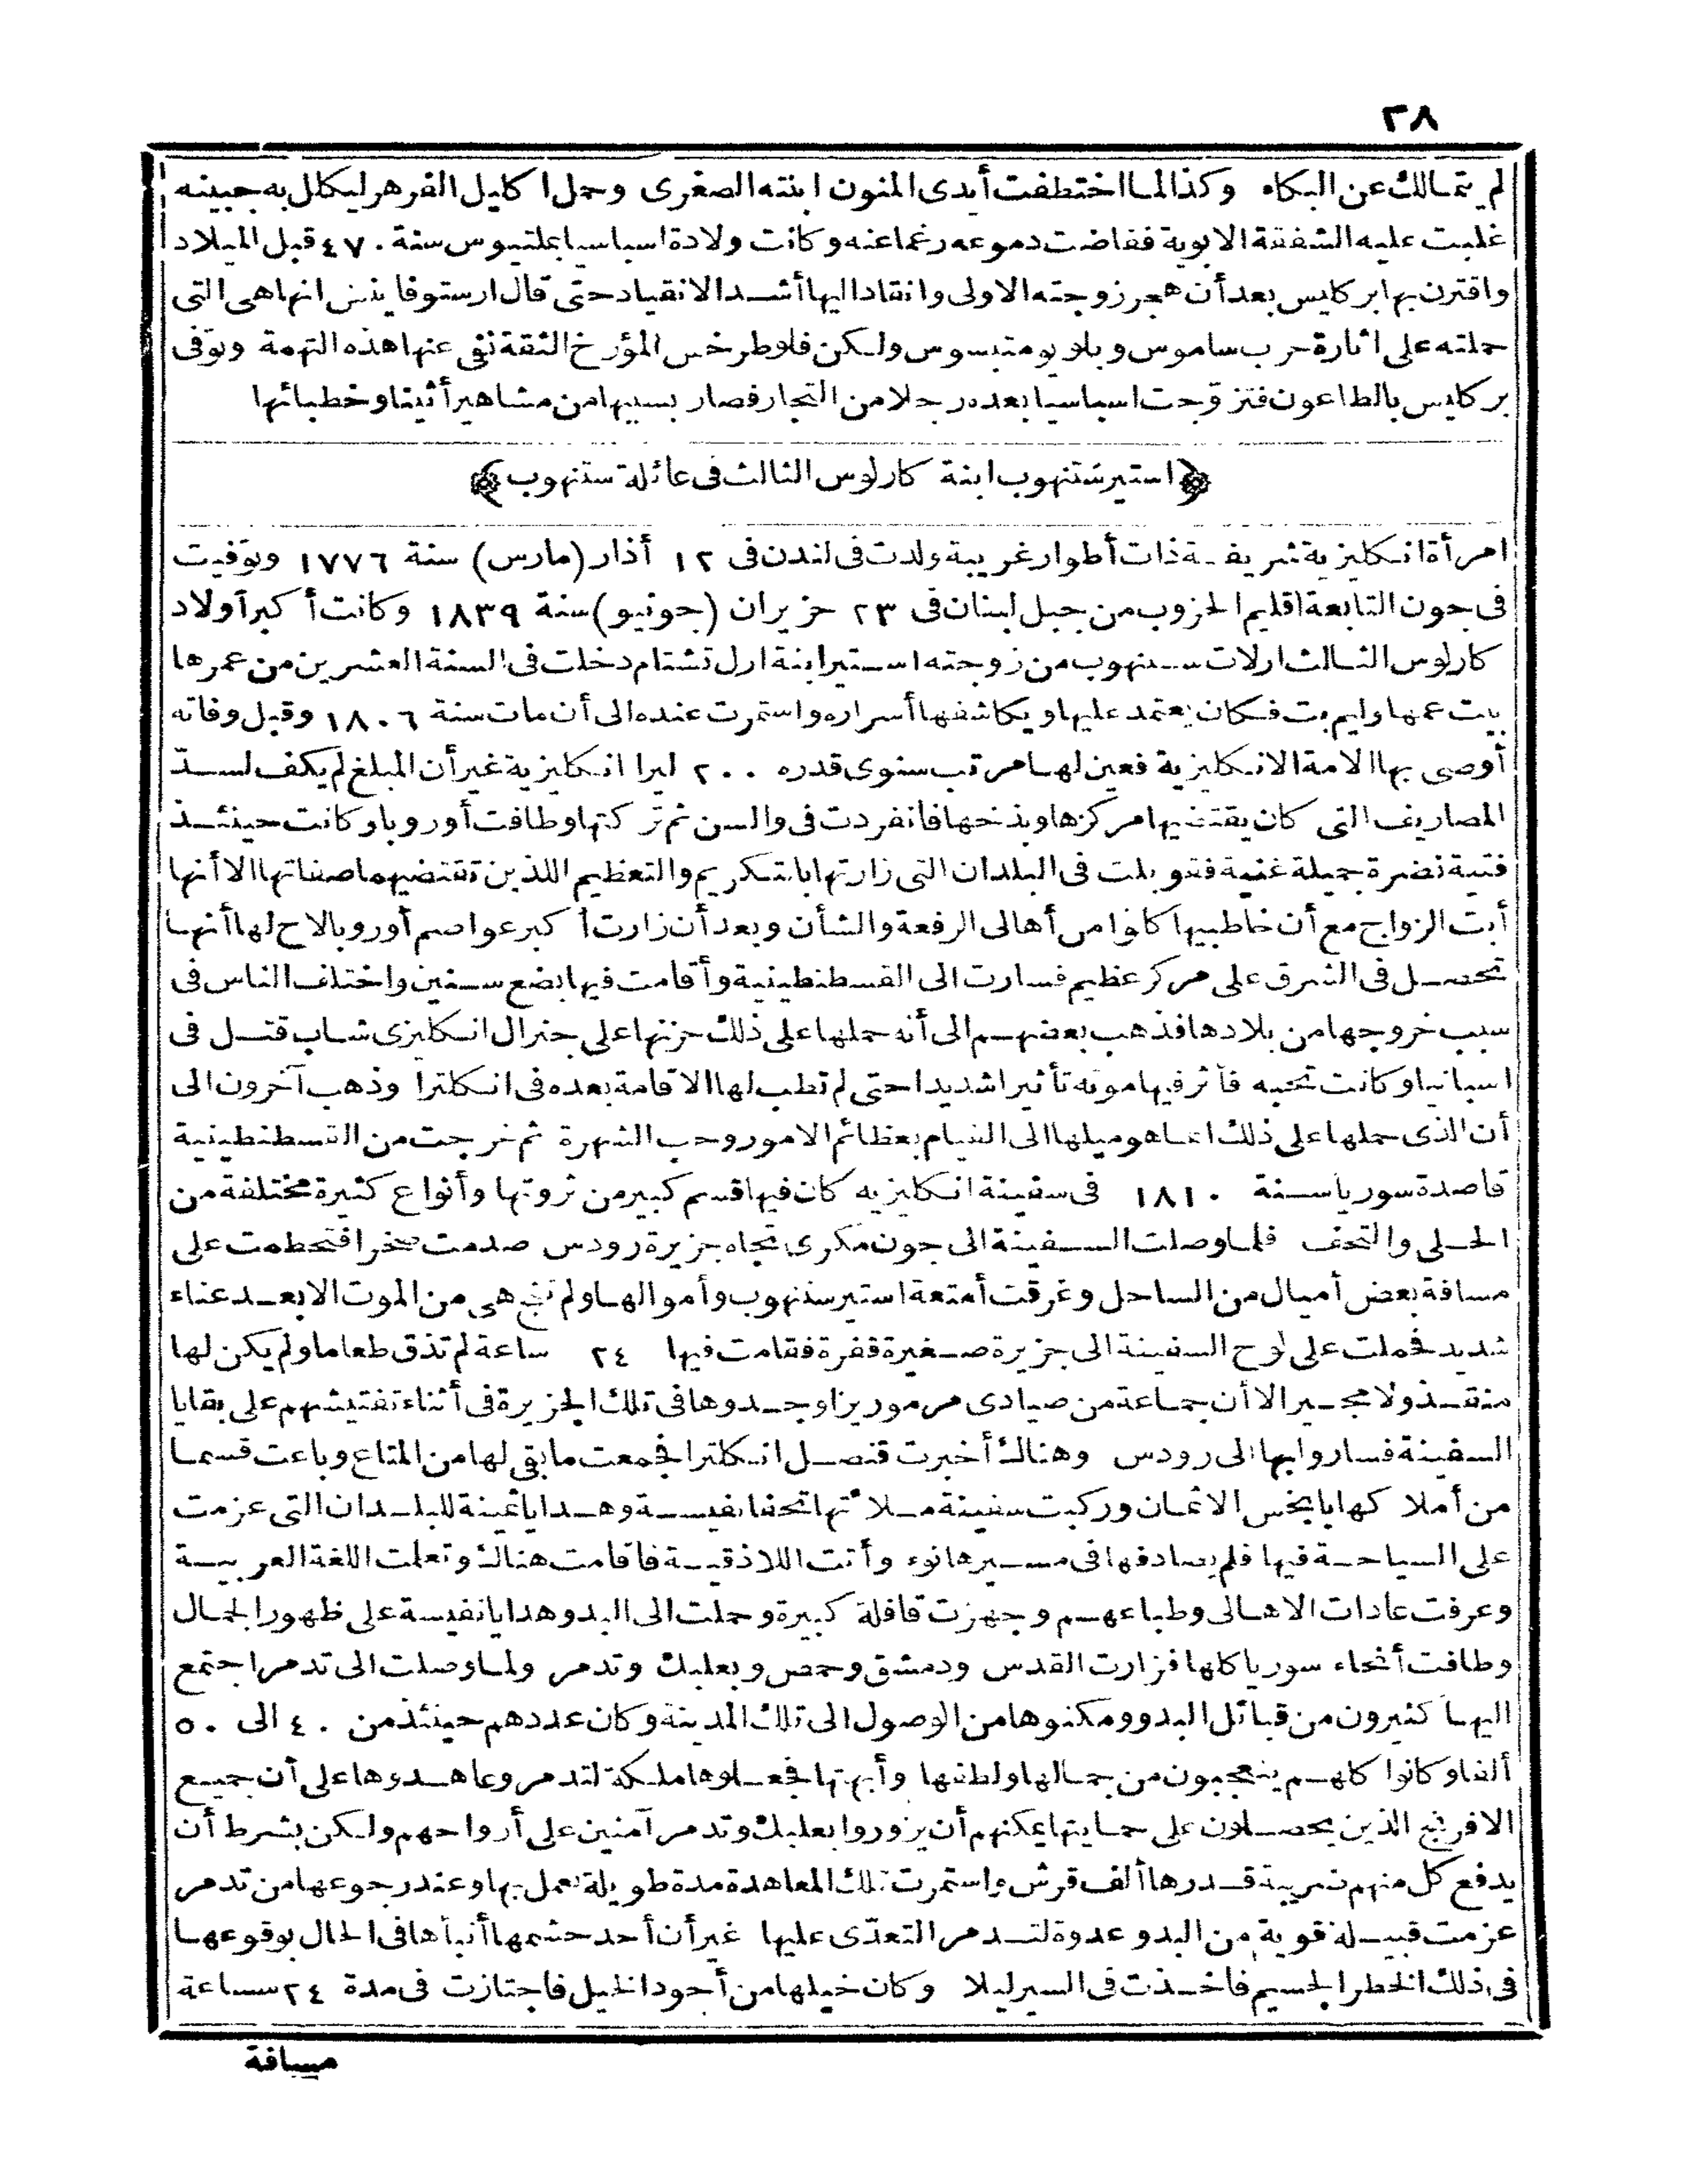 ٣٨
لم يتمالك عن البكاء وكذا لما اختطفت أيدى المنون ابنته الصغرى وحمل اكليل الفرهر ليكلل به جبينه
غلبت عليه الشفقة الابوية ففاضت دموعه رغما عنه وكانت ولادة اسباسيا بملتيوس سنة ٤٧٠ قبل الميلاد
واقترن بها بركليس بعد أن هجر زوجته الاولى وانقاد اليها أشد الانقياد حتى قال ارستوفاينس انها هى التى
حملته على اثارة حرب ساموس وبلوبومتيسوس ولكن فلوطرخس المؤرخ الثقة نفى عنها هذه التهمة وتوفى
بركليس بالطاعون فتزوّجت اسباسيا بعده رجلا من التجار فصار بسببها من مشاهير أثينا وخطبائها
﴿استير ستنهوب ابنة كارلوس الثالث فى عائلة ستنهوب﴾
امرأة انكليزية شريفة ذات أطوار غريبة ولدت فى لندن فى ١٢ أذار (مارس) سنة ١٧٧٦ وتوفيت
فى جون التابعة اقليم الخروب من جبل لبنان فى ٢٣ حزيران (جونيو) سنة ١٨٣٩ وكانت أكبر أولاد
كارلوس الثالث ارلات ستنهوب من زوجته استير ابنة ارل تشتام دخلت فى السنة العشرين من عمرها
بيت عمها وليم بت فكان يعتمد عليها ويكاشفها أسراره واستمرت عنده الى أن مات سنة ١٨٠٦ وقبل وفاته
أوصى بها الامة الانكليزية فعين لها مرتب سنوى قدره ٢٠٠ ليرا انكليزية غير أن المبلغ لم يكف لسدّ
المصاريف التى كان يقتضيها مركزها وبذخها فانفردت فى والس ثم تركتها وطافت أوروبا وكانت حينئذ
فتية نضرة جميلة غنية فقوبلت فى البلدان التى زارتها بالتكريم والتعظيم اللذين تقتضيهما صفاتها الا أنها
أبت الزواج مع أن خاطبيها كانوا من أهالى الرفعة والشأن وبعد أن زارت أكبر عواصم أوروبا لاح لها أنها
تحصل فى الشرق على مركز عظيم فسارت الى القسطنطينية وأقامت فيها بضع سنين واختلف الناس فى
سبب خروجها من بلادها فذهب بعضهم الى أنه حملها على ذلك حزنها على جنرال انكليزى شاب قتل فى
اسبانيا وكانت تحبه فأثر فيها موته تأثيرا شديدا حتى لم تطب لها الاقامة بعده فى انكلترا وذهب آخرون الى
أن الذى حملها على ذلك انما هو ميلها الى القيام بعظائم الامور وحب الشهرة ثم خرجت من القسطنطينية
قاصدة سوريا سنة ١٨١٠ فى سفينة انكليزيه كان فيها قسم كبير من ثروتها وأنواع كثيرة مختلفة من
الحلى والتحف فلما وصلت السفينة الى جون مكرى تجاه جزيرة رودس صدمت صخرا فتحطمت على
مسافة بعض أميال من الساحل وغرقت أمتعة استير ستنهوب وأموالها ولم تنج هى من الموت الا بعد عناء
شديد فحملت على لوح السفينة الى جزيرة صغيرة قفرة فقامت فيها ٢٤ ساعة لم تذق طعاما ولم يكن لها
منقذ ولا مجير الا أن جماعة من صيادى مرموريزا وجدوها فى تلك الجزيرة فى أثناء تفتيشهم على بقايا
السفينة فساروا بها الى رودس وهناك أخبرت قنصل انكلترا فجمعت ما بقى لها من المتاع وباعت قسما
من أملاكها بابخس الاثمان وركبت سفينة ملأتها تحفا نفيسة وهدايا ثمينة للبلدان التى عزمت
على السياحة فيها فلم يصادفها فى مسيرها نوء وأتت اللاذقية فاقامت هناك وتعلمت اللغة العربية
وعرفت عادات الاهالى وطباعهم وجهزت قافلة كبيرة وحملت الى البدو هدايا نفيسة على ظهور الجمال
وطافت أنحاء سوريا كلها فزارت القدس ودمشق وحمص وبعلبك وتدمر ولما وصلت الى تدمر اجتمع
اليها كثيرون من قبائل البدو ومكنوها من الوصول الى تلك المدينة وكان عددهم حينئذ من ٤٠ الى ٥٠
ألفا وكانوا كلهم يتعجبون من جمالها ولطفها وأبهتها فجعلوها ملكة لتدمر وعاهدوها على أن جميع
الافرنج الذين يحصلون على حمايتها يمكنهم أن يزوروا بعلبك وتدمر آمنين على أرواحهم ولكن بشرط أن
يدفع كل منهم ضريبة قدرها ألف قرش واستمرت تلك المعاهدة مدة طويلة يعمل بها وعند رجوعها من تدمر
عزمت قبيلة قوية من البدو عدوة لتدمر التعدّى عليها غير أن أحد حشمها أنبأها فى الحال بوقوعها
فى ذلك الخطر الجسيم فاخذت فى السير ليلا وكان خيلها من أجود الخيل فاجتازت فى مدة ٢٤ ساعة
مسافة